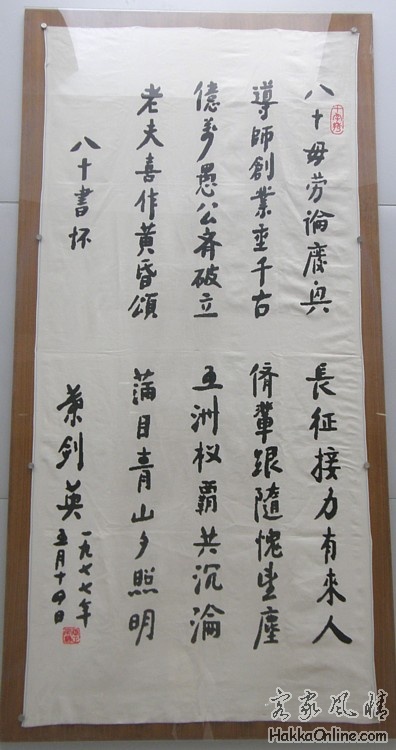 八十毋劳論廢興 長征接力有來人
導師創業垂千古 儕輩跟隨愧望塵
億萬愚公齐破立 五洲权霸共沉淪
老夫喜作黄昏頌 滿目青山夕照明
八十書怀 葉剑英
一九七七年
五月十四日
客家风情
HakkaOnline.com